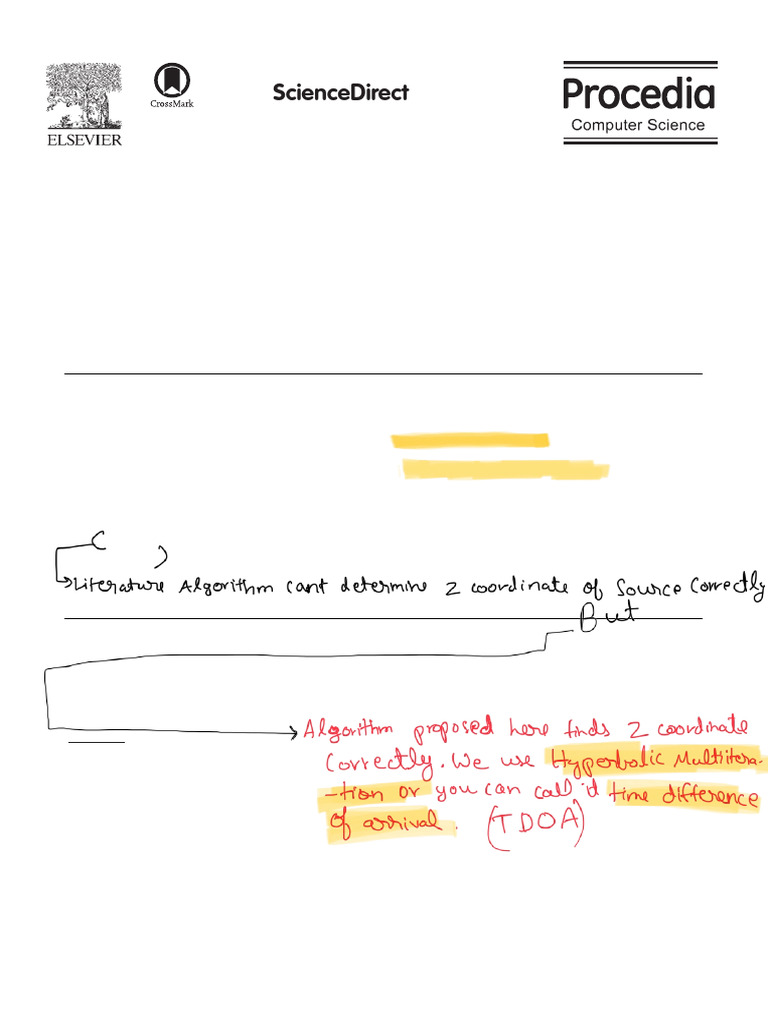 CrossMark
ScienceDirect
Procedia
Computer Science
ELSEVIER
Literature Algorithm cant determine Z coordinate of Source Correctly
But
Algorithm proposed here finds Z coordinate
Correctly. We use Hyperbolic Multilitera-
-tion or you can call it time difference
of arrival. (TDOA)